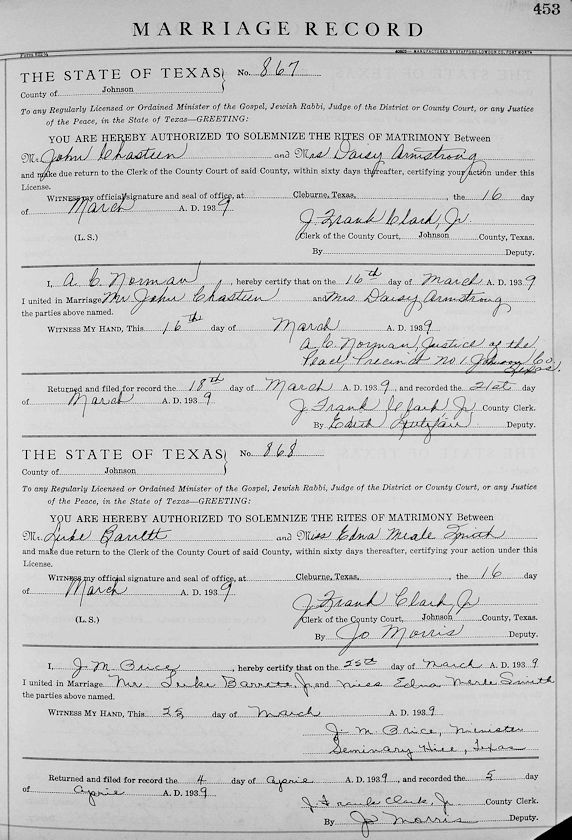 453
MARRIAGE RECORD
MANUFACTURED BY STAFFORD-LOWDON CO., FORT WORTH
THE STATE OF TEXAS No. 867
County of Johnson
To any Regularly Licensed or Ordained Minister of the Gospel, Jewish Rabbi, Judge of the District or County Court, or any Justice
of the Peace, in the State of Texas—GREETING:
YOU ARE HEREBY AUTHORIZED TO SOLEMNIZE THE RITES OF MATRIMONY Between
Mr. John Chasteen and Mrs Daisy Armstrong
and make due return to the Clerk of the County Court of said County, within sixty days thereafter, certifying your action under this
License.
WITNESS my official signature and seal of office, at Cleburne, Texas, the 16 day
of March A. D. 1939
J. Frank Clark, Jr
(L. S.) Clerk of the County Court, Johnson County, Texas.
By Deputy.
I, A. C. Norman, hereby certify that on the 16th day of March A. D. 1939
I united in Marriage Mr John Chasteen and Mrs Daisy Armstrong
the parties above named.
WITNESS MY HAND, This 16th day of March A. D. 1939.
A. C. Norman, Justice of the
Peace, Precinct No 1. Johnson Co.
Texas.
Returned and filed for record the 18th day of March A. D. 1939, and recorded the 21st day
of March A. D. 1939
J. Frank Clark Jr County Clerk.
By Edith Deputy.
THE STATE OF TEXAS No. 868
County of Johnson
To any Regularly Licensed or Ordained Minister of the Gospel, Jewish Rabbi, Judge of the District or County Court, or any Justice
of the Peace, in the State of Texas—GREETING:
YOU ARE HEREBY AUTHORIZED TO SOLEMNIZE THE RITES OF MATRIMONY Between
Mr. Luke Barrett and Miss Edna Merle Smith
and make due return to the Clerk of the County Court of said County, within sixty days thereafter, certifying your action under this
License.
WITNESS my official signature and seal of office, at Cleburne, Texas, the 16 day
of March A. D. 1939
J. Frank Clark, Jr
(L. S.) Clerk of the County Court, Johnson County, Texas.
By Jo Morris Deputy.
I, J. M. Price, hereby certify that on the 25th day of March A. D. 1939
I united in Marriage Mr. Luke Barrett, Jr. and Miss Edna Merle Smith
the parties above named.
WITNESS MY HAND, This 25 day of March A. D. 1939.
J. M. Price, Minister
Seminary Hill, Texas
Returned and filed for record the 4 day of April A. D. 1939, and recorded the 5 day
of April A. D. 1939
J. Frank Clark, Jr. County Clerk.
By Jo Morris Deputy.